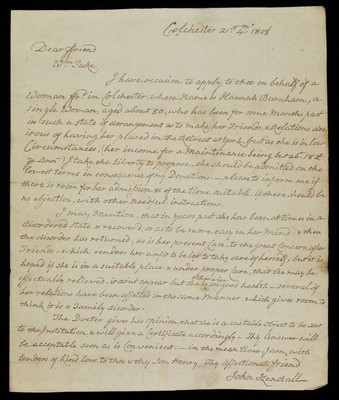 Colchester 21st 4mo 1808
Dear ffriend
Wm Tuke,
I have occasion to apply to thee on behalf of a
Woman ffrd in Colchester, whose Name is Hannah Burnham, a
single Woman, aged about 50, who has been for some Months past
in such a state of derangement as to make her Friends & Relations des-
irous of having her placed in the Retreat at York, but as she is in low
Circumstances, her income for a Maintenance being but ab.t 18 £
Ann.m I take the liberty to propose, she should be admitted on the
lowest terms in consequence of my Donations, – please to inform me if
there is room for her admission & of the time suitable if there should be
no objection, with other needful instructions.
I may Mention, that in years past she has been at times in a
disordered state, & recovered so as to be more easy in her Mind, & when
the disorder has returned, as is her present Case, to the great Concern of her
Friends, which renders her unfit to be left to take care of herself, but it is
hoped if she is in a suitable place & under proper care, that she may be
effectually relieved, & is in good health – several of
her relations have been affected in the same Manner, which gives room to
think it is a family disorder.
The Doctor gives his opinion, that she is a suitable object to be sent
to the Institution, & will give a Certificate accordingly – Thy Answer will
be acceptable soon as is Convenient – in the mean time I am, with
tenders of kind love to thee & thy Son Henry, Thy affectionate friend
John Kendall